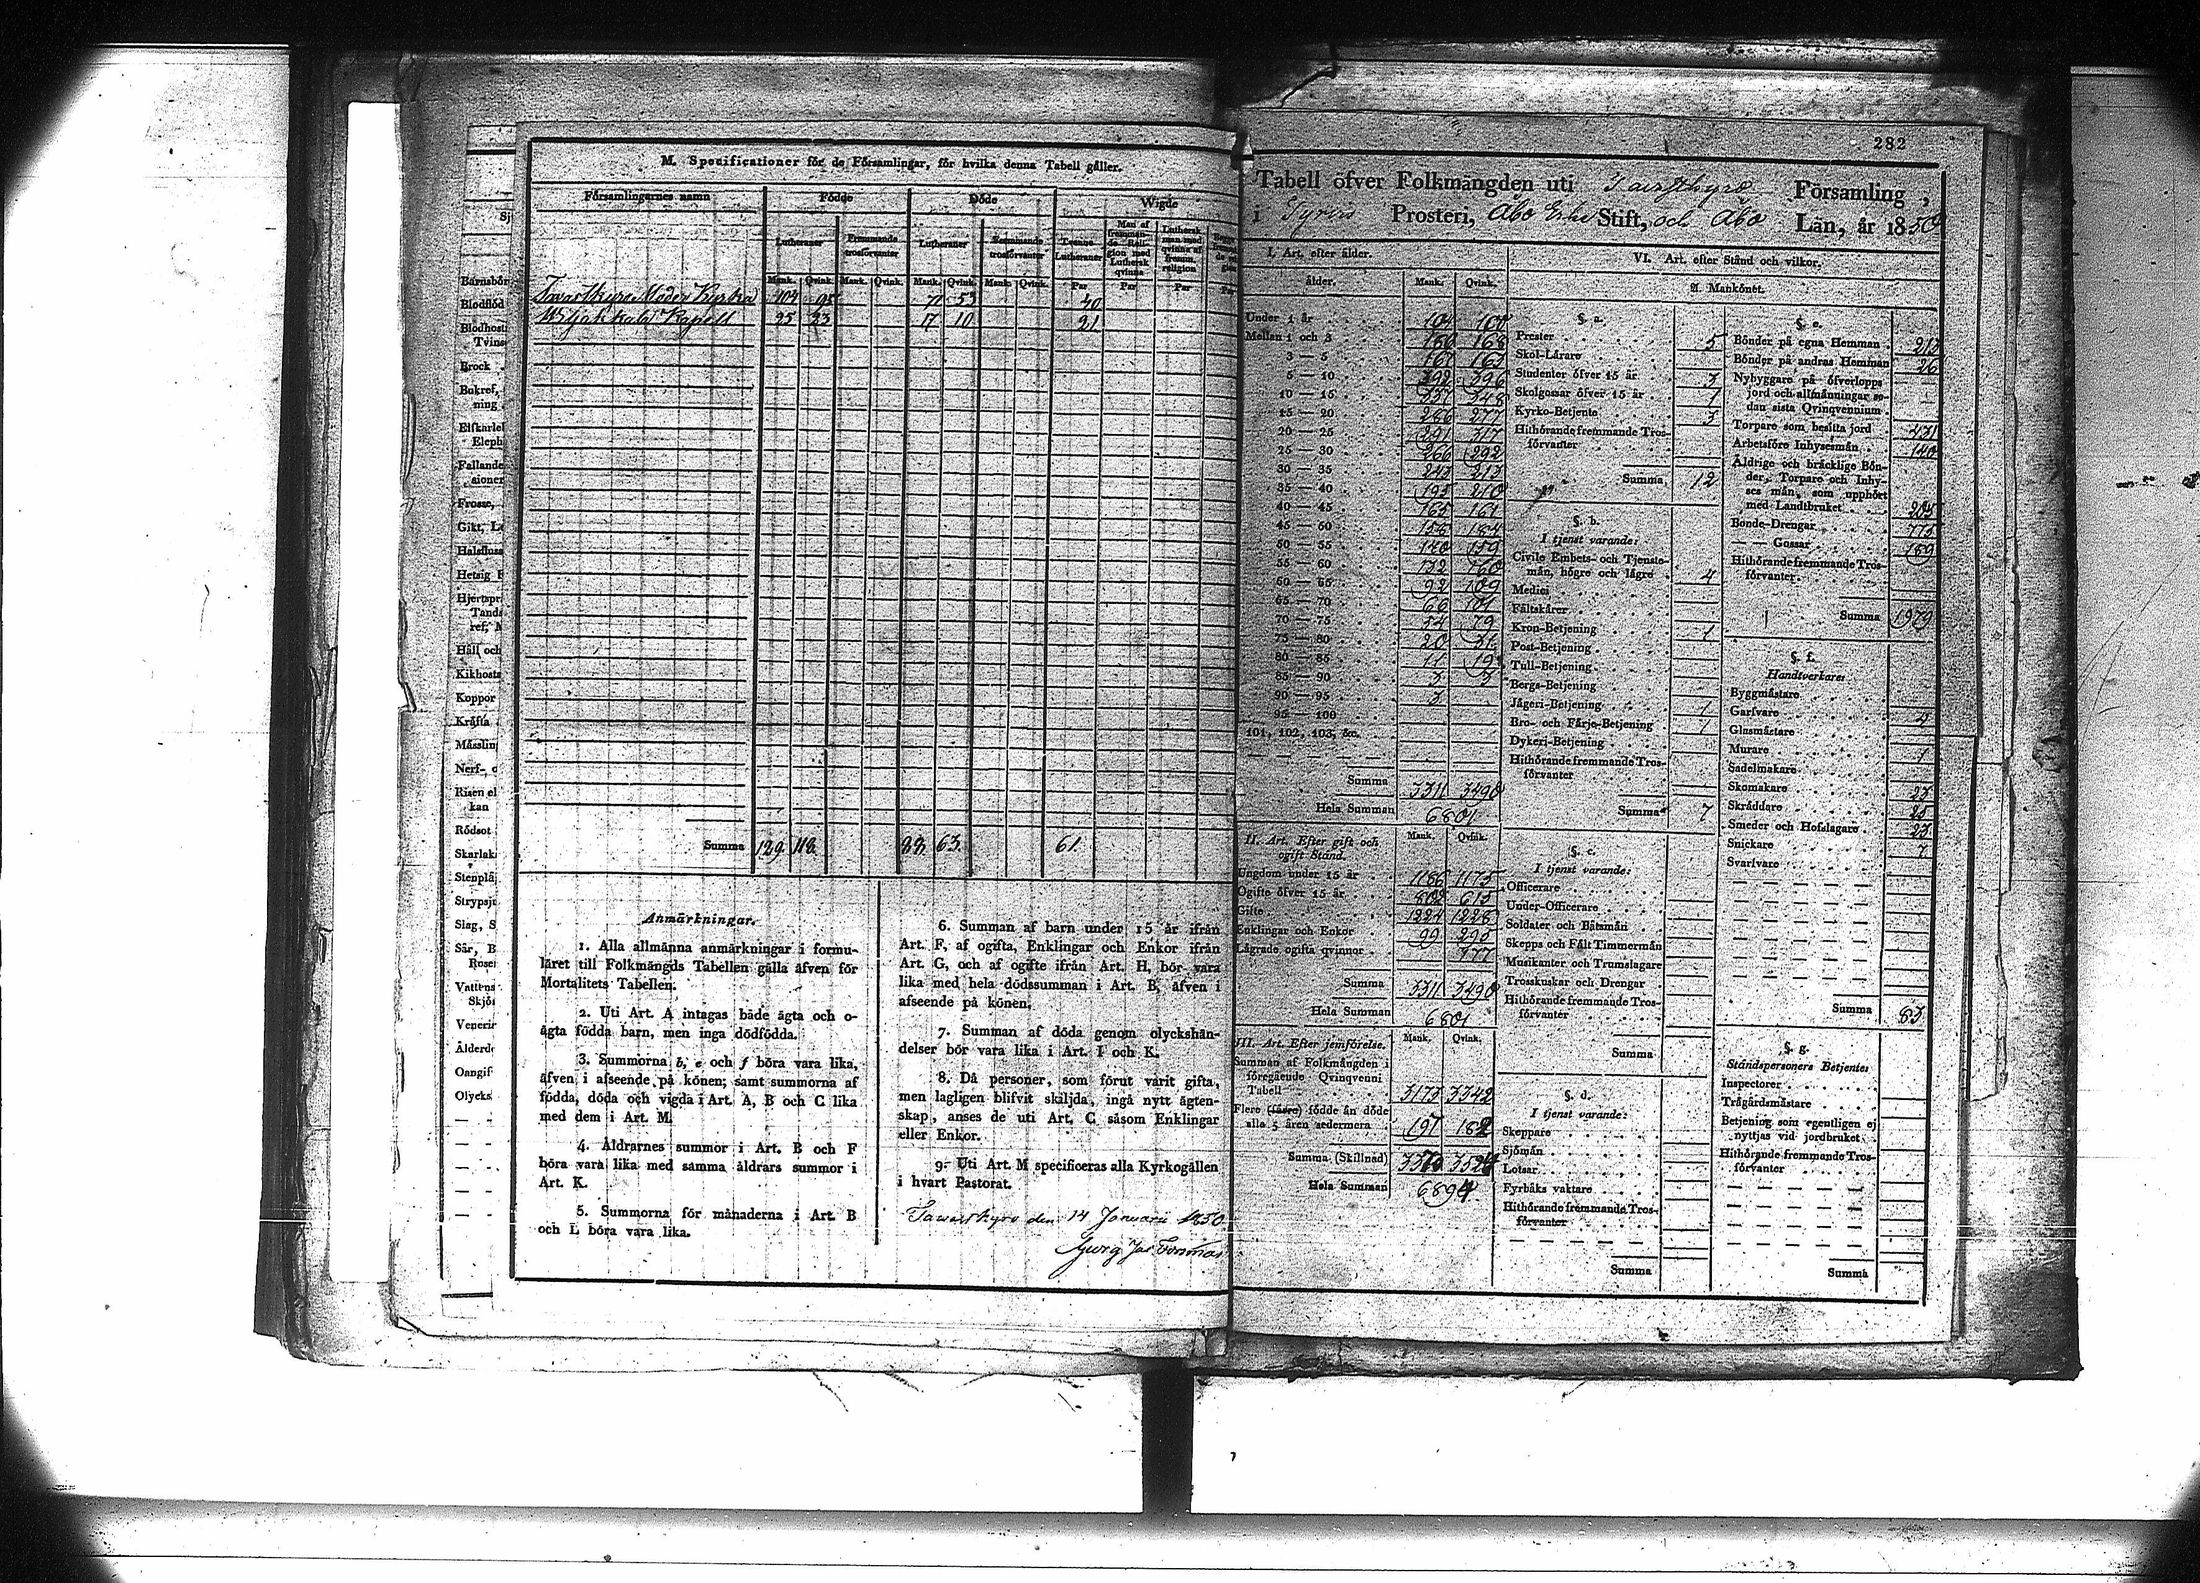 M. Specificationer för de Församlingar, för hvilka denna Tabell gäller.
Församlingarnes namn Födde Döde Wigde
Lutheraner Fremmande trosförvanter Lutheraner Fremmande trosförvanter Tvenne Lutheraner Man af fremmande Religion med Luthersk qvinna Luthersk man med qvinna af fremm. religion
Mank. Qvink. Mank. Qvink. Mank. Qvink. Mank. Qvink. Par Par Par
Tavastkyro Moder Kyrka 104 95 71 53 40
Kapell 25 23 17 10 21
Summa 129 118 88 63 61
Anmärkningar.
1. Alla allmänna anmärkningar i formu-
läret till Folkmängds Tabellen gälla äfven för
Mortalitets Tabellen.
2. Uti Art. A intagas både ägta och o-
ägta födda barn, men inga dödfödda.
3. Summorna b, e och f böra vara lika,
äfven i afseende på könen; samt summorna af
födda, döda och vigda i Art. A, B och C lika
med dem i Art. M.
4. Åldrarnes summor i Art. B och F
böra vara lika med samma åldrars summor i
Art. K.
5. Summorna för månaderna i Art. B
och L böra vara lika.
6. Summan af barn under 15 år ifrån
Art. F, af ogifta, Enklingar och Enkor ifrån
Art. G, och af ogifte ifrån Art. H, bör vara
lika med hela dödssumman i Art. B, äfven i
afseende på könen.
7. Summan af döda genom olyckshän-
delser bör vara lika i Art. I och K.
8. Då personer, som förut varit gifta,
men lagligen blifvit skiljda, ingå nytt ägten-
skap, anses de uti Art. C såsom Enklingar
eller Enkor.
9. Uti Art. M specificeras alla Kyrkogällen
i hvart Pastorat.
Tawastkyro den 14 Januari 1850
Barnsbör
Blodflöd
Blodhost
Tvins
Brock
Bukref,
ning
Elfkarlel
Eleph
Fallande
sioner
Frosse,
Gikt, Le
Halsfluss
Hetsig F
Hjertspr
Tands
ref, M
Håll och
Kikhosta
Koppor
Kräfta
Mässling
Nerf-, o
Risen el
kan
Rödsot
Skarlak
Stenplå
Strypsju
Slag, S
Sår, B
Rosen
Vattens
Skjör
Venerin
Ålderdo
Oangif
Olycks
282
Tabell öfver Folkmängden uti Tavastkyro Församling,
i Tyrvis Prosteri, Åbo Erke Stift, och Åbo Län, år 1850
I. Art. efter ålder.
ålder. Mank. Qvink.
Under 1 år 104 100
Mellan 1 och 3 186 168
3 — 5 167 163
5 — 10 392 396
10 — 15 337 348
15 — 20 286 277
20 — 25 291 317
25 — 30 266 292
30 — 35 243 213
35 — 40 195 210
40 — 45 165 161
45 — 50 156 184
50 — 55 140 159
55 — 60 132 160
60 — 65 92 109
65 — 70 66 101
70 — 75 54 79
75 — 80 20 31
80 — 85 11 19
85 — 90 3 3
90 — 95 3
95 — 100
101, 102, 103, &c.
Summa 3311 3490
Hela Summan 6801
II. Art. Efter gift och ogift Stånd. Mank. Qvink.
Ungdom under 15 år 1186 1175
Ogifte öfver 15 år 802 615
Gifte 1224 1228
Enklingar och Enkor 99 295
Lägrade ogifta qvinnor 177
Summa 3311 3490
Hela Summan 6801
III. Art. Efter jemförelse. Mank. Qvink.
Summan af Folkmängden i
föregående Qvinqvenni
Tabell 3173 3342
Flere (färre) födde än döde
alla 5 åren sedermera 197 182
Summa (Skillnad) 3370 3524
Hela Summan 6894
VI. Art. efter Stånd och vilkor.
A. Mankönet.
§. a.
Prester 5
Skol-Lärare
Studenter öfver 15 år 3
Skolgossar öfver 15 år 1
Kyrko-Betjente 3
Hithörande fremmande Tros-
förvanter
Summa 12
§. b.
I tjenst varande:
Civile Embets- och Tjenste-
män, högre och lägre 4
Medici
Fältskärer
Kron-Betjening 1
Post-Betjening
Tull-Betjening
Bergs-Betjening
Jägeri-Betjening 1
Bro- och Färje-Betjening 1
Dykeri-Betjening
Hithörande fremmande Tros-
förvanter
Summa 7
§. c.
I tjenst varande:
Officerare
Under-Officerare
Soldater och Båtsmän
Skepps och Fält Timmermän
Musikanter och Trumslagare
Trosskuskar och Drengar
Hithörande fremmande Tros-
förvanter
Summa
§. d.
I tjenst varande:
Skeppare
Sjömän
Lotsar
Fyrbåks vaktare
Hithörande fremmande Tros-
förvanter
Summa
§. e.
Bönder på egna Hemman 213
Bönder på andras Hemman 26
Nybyggare på öfverlopps
jord och allmänningar se-
dan sista Qvinqvennium
Torpare som besitta jord 431
Arbetsföre Inhysesmän 140
Äldrige och bräcklige Bön-
der, Torpare och Inhy-
ses män, som upphört
med Landtbruket 205
Bonde-Drengar 775
— — Gossar 189
Hithörande fremmande Tros-
förvanter
Summa 1979
§. f.
Handtverkare:
Byggmästare
Garfvare 4
Glasmästare
Murare 1
Sadelmakare
Skomakare 23
Skräddare 25
Smeder och Hofslagare 23
Snickare 7
Svarfvare
Summa 83
§. g.
Ståndspersoners Betjente:
Inspectorer
Trägårdsmästare
Betjening som egentligen ej
nyttjas vid jordbruket
Hithörande fremmande Tros-
förvanter
Summa